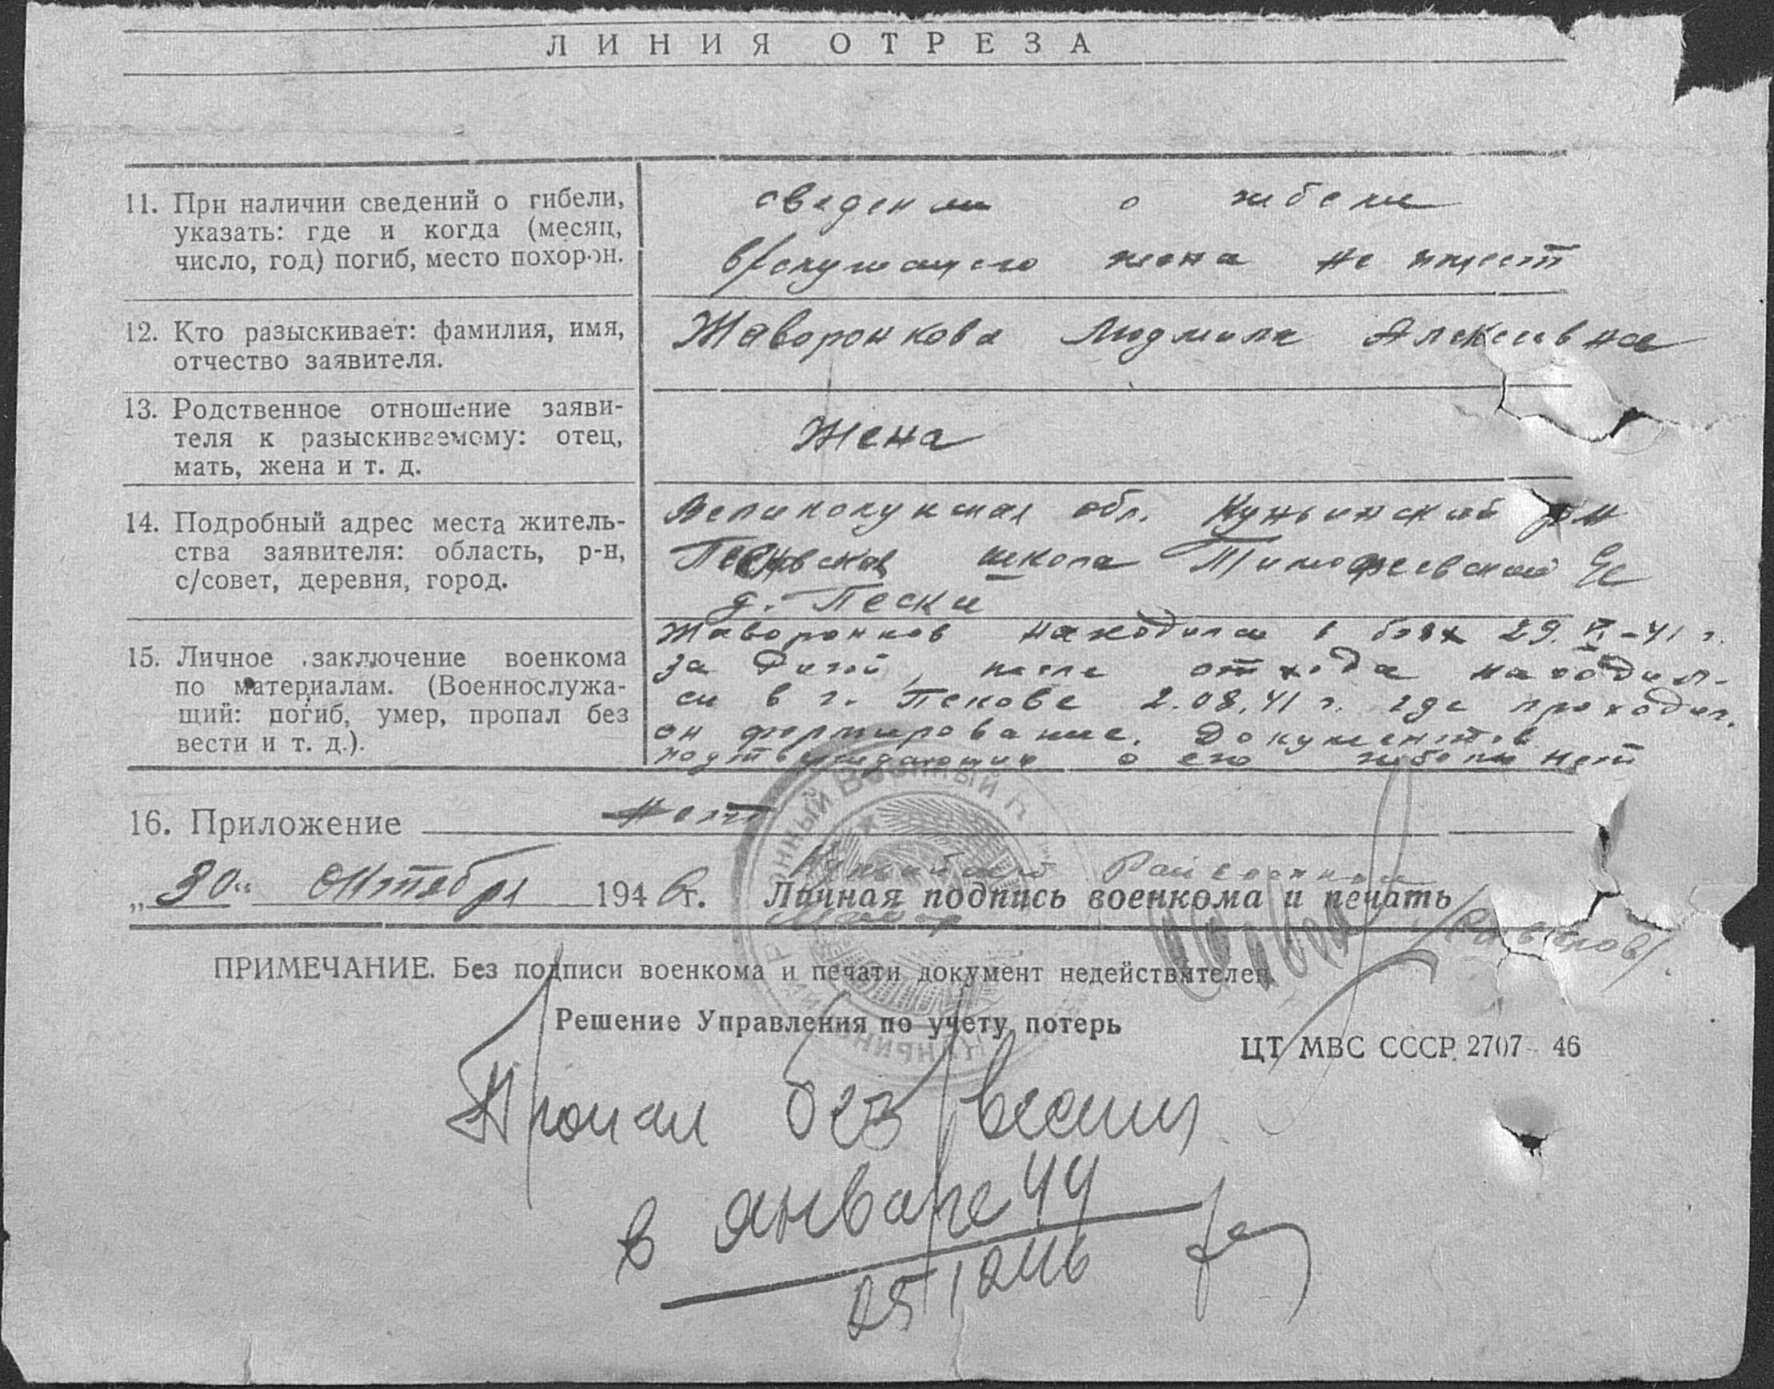 ЛИНИЯ ОТРЕЗА
11. При наличии сведений о гибели,
указать: где и когда (месяц,
число, год) погиб, место похорон.
сведении о гибели
жена не имеет
12. Кто разыскивает: фамилия, имя,
отчество заявителя.
Жаворонкова Людмила Алексеевна
13. Родственное отношение заяви-
теля к разыскиваемому: отец,
мать, жена и т. д.
Жена
14. Подробный адрес места житель-
ства заявителя: область, р-н,
с/совет, деревня, город.
Великолукская обл. Куньинский р-н
школа Тимофеевский
д. Пески
15. Личное заключение военкома
по материалам. (Военнослужа-
щий: погиб, умер, пропал без
вести и т. д.).
Жаворонков находился в боях 29.VI-41 г.
за Ригой, после отхода находил-
ся в г. Пскове 2.08.41 г. где проходил
он формирование. Документов
подтверждающих о его гибели нет
16. Приложение нет
„30“ октября 1946г. Личная подпись военкома и печать
Куньинский Райвоенком
Майор
ПРИМЕЧАНИЕ. Без подписи военкома и печати документ недействителен
Решение Управления по учету потерь
ЦТ МВС СССР 2707—46
Пропал без вести
в январе 44